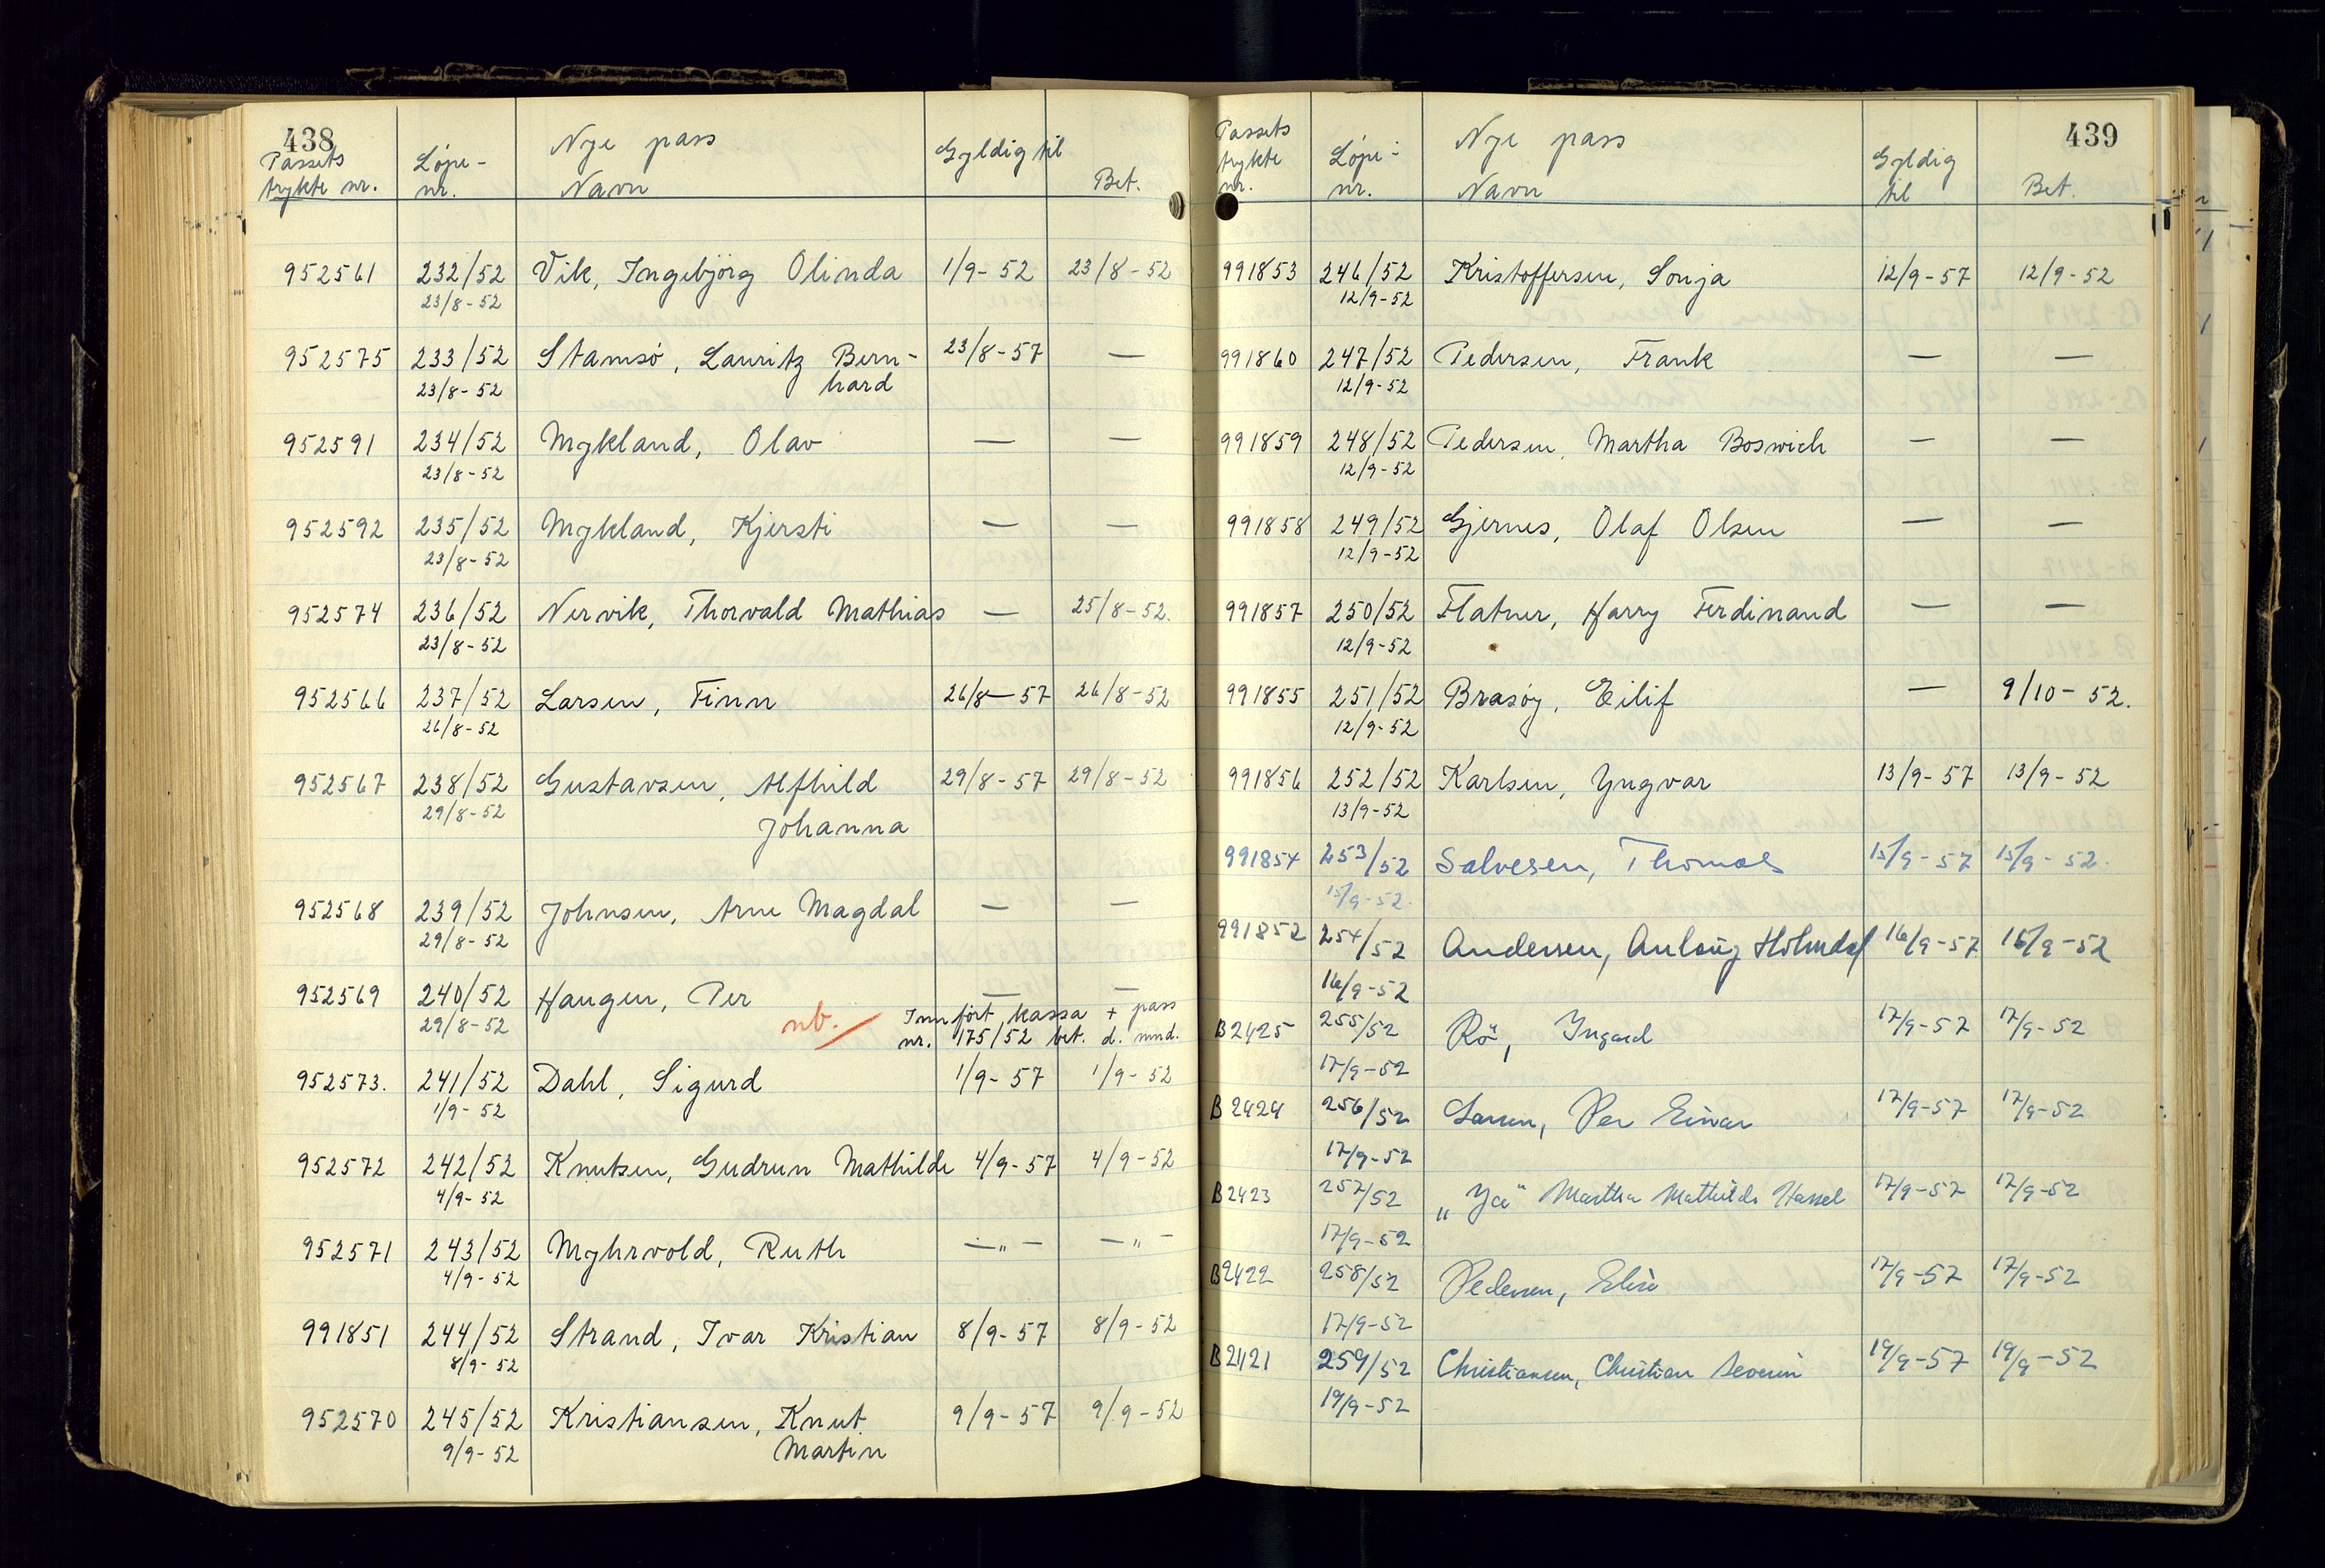 438
Passets trykte nr. Løpe-nr. Nye pass Navn Gyldig til Bet.
952561 232/52 Vik, Ingebjörg Olinda 1/9-52 23/8-52
23/8-52
952575 233/52 Stamsö, Lauritz Bern- 23/8-57 —
23/8-52 hard
952591 234/52 Mykland, Olav — —
23/8-52
952592 235/52 Mykland, Kjersti — —
23/8-52
952574 236/52 Nervik, Thorvald Mathias — 25/8-52.
23/8-52
952566 237/52 Larsen, Finn 26/8-57 26/8-52
26/8-52
952567 238/52 Gustavsen, Alfhild 29/8-57 29/8-52
29/8-52 Johanna
952568 239/52 Johnsen, Arne Magdal — —
29/8-52
952569 240/52 Haugen, Per — —
29/8-52 nb. Innfört kassa + pass
nr. 175/52 bet. d. mnd.
952573. 241/52 Dahl, Sigurd 1/9-57 1/9-52
1/9-52
952572 242/52 Knutsen, Gudrun Mathilde 4/9-57 4/9-52
4/9-52
952571 243/52 Myhrvold, Ruth —"— —"—
4/9-52
991851 244/52 Strand, Ivar Kristian 8/9-57 8/9-52
8/9-52
952570 245/52 Kristiansen, Knut 9/9-57 9/9-52
9/9-52 Martin
439
Passets trykte nr. Løpe-nr. Nye pass Navn Gyldig til Bet.
991853 246/52 Kristoffersen, Sonja 12/9-57 12/9-52
12/9-52
991860 247/52 Pedersen, Frank — —
12/9-52
991859 248/52 Pedersen, Martha Boswich — —
12/9-52
991858 249/52 Gjernes, Olaf Olsen — —
12/9-52
991857 250/52 Flatner, Harry Ferdinand — —
12/9-52
991855 251/52 Brasöy, Eilif — 9/10-52.
12/9-52
991856 252/52 Karlsen, Yngvar 13/9-57 13/9-52
13/9-52
991854 253/52 Salvesen, Thomas 15/9-57 15/9-52.
15/9-52.
991852 254/52 Andersen, Anlaug Holmdal 16/9-57 16/9-52
16/9-52
B2425 255/52 Rö, Ingard 17/9-57 17/9-52
17/9-52
B2424 256/52 Larsen, Per Einar 17/9-57 17/9-52
17/9-52
B2423 257/52 Martha Mathilde Hassel 17/9-57 17/9-52
17/9-52
B2422 258/52 Pedersen, Elise 17/9-57 17/9-52
17/9-52
B2421 259/52 Christiansen, Christian Severin 19/9-57 19/9-52
19/9-52